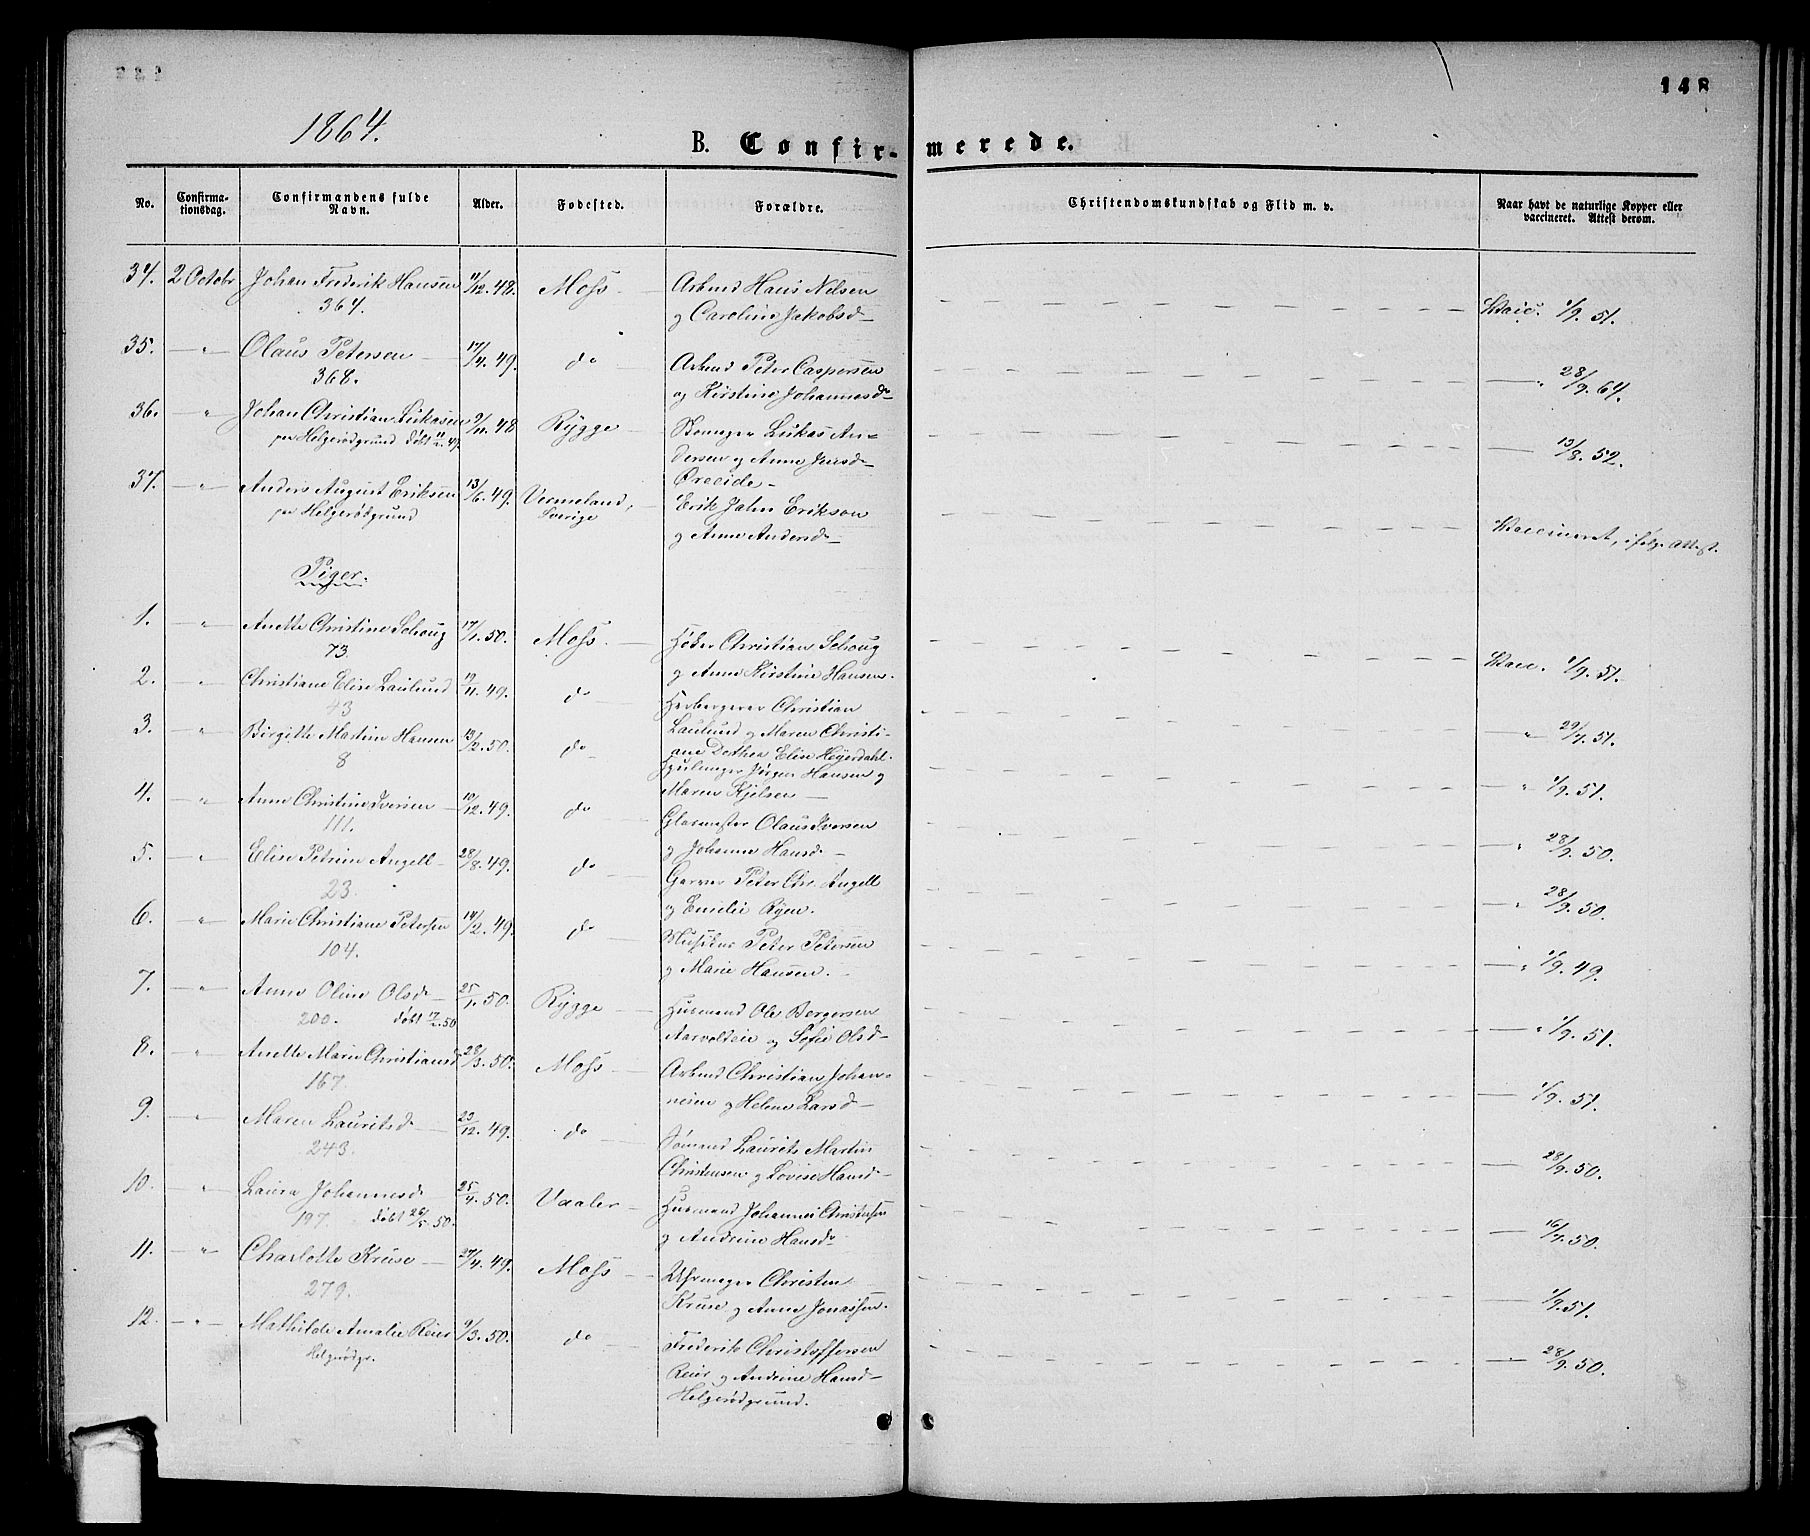 148
1864.
B. Confirmerede.
No. Confirmationsdag. Confirmandens fulde Navn. Alder. Fødested. Forældre. Christendomskundskab og Flid m. v. Naar havt de naturlige Kopper eller vaccineret. Attest derom.
34. 2 Octobr Johan Frederik Hansen 11/12.48. Moss. Arbmd Hans Nilsen
364. og Caroline Jakobsd Vacc. 1/9.51.
35. — " — Olaus Petersen 17/4.49. do Arbmd Peter Caspersen
368. og Kirstine Johannesd — " 28/9.64.
36. — " Johan Christian Lukasen 9/11.48 Rygge Lukas An-
paa Helgerødgrund døbt 11/2.49. dersen og Anne Jensd 13/8.52.
Øreeide
37. — " — Anders August Eriksen 13/6.49. Vermeland, Erik Jahn Erikson
paa Helgerødgrund Sverige og Anna Andersd Vaccineret, ifølge Attest.
Piger.
1. — " — Anette Christine Schoug 17/1.50. Moss. Høker Christian Schoug
73. og Anne Kirstine Hansen. Vacc. 1/9.51.
2. — " — Christiane Elise Laulund 19/11.49. do Herbergerer Christian
43 Laulund og Maren Christi-
ane Dorthea Elise Heyerdahl. — " 29/7.51.
3. — " — Birgitte Martine Hansen 13/2.50. do Jørgen Hansen og
8 Maren Kjelsen — " 1/9.51.
4. — " — Anne Christine Iversen 10/12.49. do Glarmester Olaus Iversen
111. og Johanne Hansd — " 28/9.50.
5. — " — Elise Petrine Angell 28/8.49. do Garver Peter Chr. Angell
23. og Emilie Ryen. — " 28/9.50.
6. — " — Marie Christiane Petersen 14/2.49. do Peter Petersen
104. og Marie Hansen. — " 1/9.49.
7. — " — Anne Oline Olsd 25/1.50. Rygge Husmand Ole Bergersen
200. døbt 17/2.50 og Sofie Olsd — " 1/9.51.
8. — " — Anette Marie Christiansd 28/3.50. Moss Arbmd Christian Johan-
167. nesen og Helene Larsd 1/9.51.
9. — " — Maren Lauritsd 23/12.49. do Sømand Laurits Martin
243. Christensen og Lovise Hansd 28/9.50.
10. — " — Laura Johannesd 25/4.50. Vaaler Husmand Johannes Christensen
197. døbt 26/5.50. og Andrine Hansd 16/7.50.
11. — " — Charlotte Kruse 27/4.49. Moss Uhrmager Christen
279. Kruse og Anne Jonassen. 1/9.51.
12. — " — Mathilde Amalie Reier 9/3.50. do Frederik Christoffersen
Helgerødgr. Reier og Andrine Hansd 28/9.50.
Helgerødgrund.